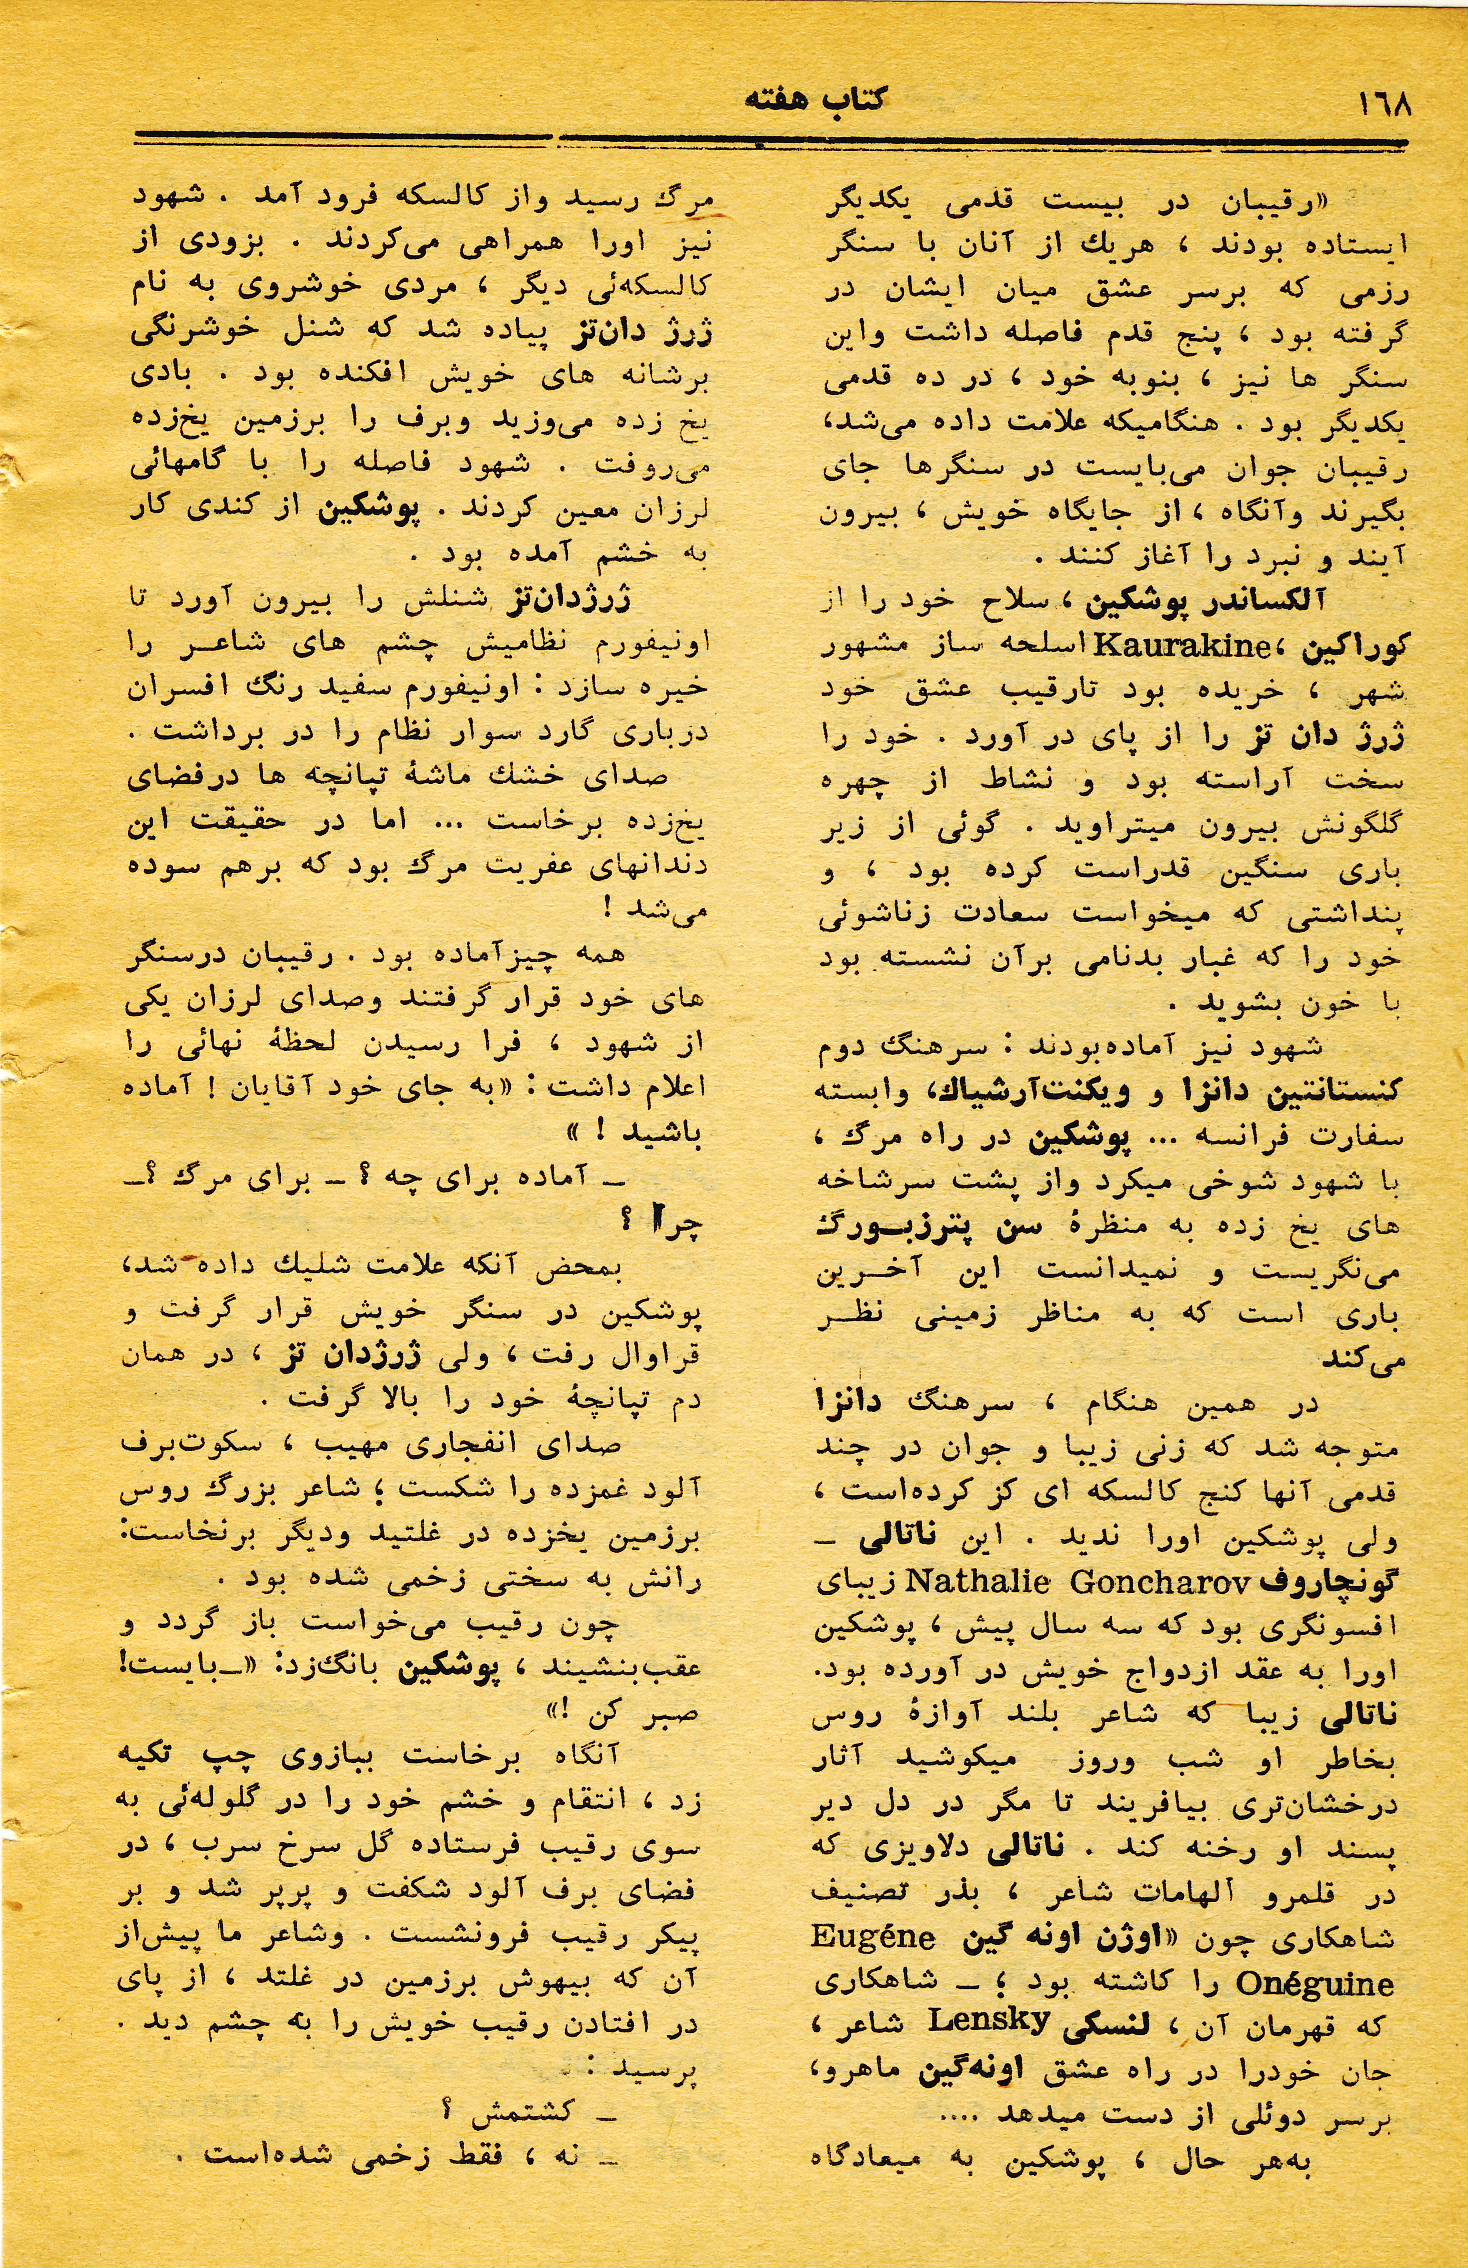 ۱٦۸
کتاب هفته
«رقیبان در بیست قدمی یکدیگر
ایستاده بودند ، هریك از آنان با سنگر
رزمی که برسر عشق میان ایشان در
گرفته بود ، پنج قدم فاصله داشت واین
سنگر ها نیز ، بنوبه خود ، در ده قدمی
یکدیگر بود . هنگامیکه علامت داده می‌شد،
رقیبان جوان می‌بایست در سنگرها جای
بگیرند وآنگاه ، از جایگاه خویش ، بیرون
آیند و نبرد را آغاز کنند .
آلکساندر پوشکین ، سلاح خود را از
کوراکین ،Kaurakine اسلحه ساز مشهور
شهر ، خریده بود تارقیب عشق خود
ژرژ دان تز را از پای در آورد . خود را
سخت آراسته بود و نشاط از چهره
گلگونش بیرون میتراوید . گوئی از زیر
باری سنگین قدراست کرده بود ، و
پنداشتی که میخواست سعادت زناشوئی
خود را که غبار بدنامی برآن نشسته بود
با خون بشوید .
شهود نیز آماده‌بودند : سرهنگ دوم
کنستانتین دانزا و ویکنت‌آرشیاك، وابسته
سفارت فرانسه ... پوشکین در راه مرگ ،
با شهود شوخی میکرد واز پشت سرشاخه
های یخ زده به منظرهٔ سن پترزبـورگ
می‌نگریست و نمیدانست این آخـرین
باری است که به مناظر زمینی نظـر
می‌کند
در همین هنگام ، سرهنگ دانزا
متوجه شد که زنی زیبا و جوان در چند
قدمی آنها کنج کالسکه ای کز کرده‌است ،
ولی پوشکین اورا ندید . این ناتالی ـ
گونچاروف Nathalie Goncharov زیبای
افسونگری بود که سه سال پیش ، پوشکین
اورا به عقد ازدواج خویش در آورده بود.
ناتالی زیبا که شاعر بلند آوازهٔ روس
بخاطر او شب وروز میکوشید آثار
درخشان‌تری بیافریند تا مگر در دل دیر
پسند او رخنه کند . ناتالی دلاویزی که
در قلمرو الهامات شاعر ، بذر تصنیف
شاهکاری چون «اوژن اونه گین Eugéne
Onéguine را کاشته بود ؛ ـ شاهکاری
که قهرمان آن ، لنسکی Lensky شاعر ،
جان خودرا در راه عشق اونه‌گین ماهرو،
برسر دوئلی از دست میدهد ....
به‌هر حال ، پوشکین به میعادگاه
مرگ رسید واز کالسکه فرود آمد . شهود
نیز اورا همراهی می‌کردند . بزودی از
کالسکه‌ئی دیگر ، مردی خوشروی به نام
ژرژ دان‌تز پیاده شد که شنل خوشرنگی
برشانه های خویش افکنده بود . بادی
یخ زده می‌وزید وبرف را برزمین یخ‌زده
می‌روفت . شهود فاصله را با گامهائی
لرزان معین کردند . پوشکین از کندی کار
به خشم آمده بود .
ژرژدان‌تز شنلش را بیرون آورد تا
اونیفورم نظامیش چشم های شاعـر را
خیره سازد : اونیفورم سفید رنگ افسران
درباری گارد سوار نظام را در برداشت .
صدای خشك ماشهٔ تپانچه ها درفضای
یخ‌زده برخاست ... اما در حقیقت این
دندانهای عفریت مرگ بود که برهم سوده
می‌شد !
همه چیزآماده بود . رقیبان درسنگر
های خود قرار گرفتند وصدای لرزان یکی
از شهود ، فرا رسیدن لحظهٔ نهائی را
اعلام داشت : «به جای خود آقایان ! آماده
باشید ! »
ـ آماده برای چه ؟ ـ برای مرگ ؟ـ
چرا ؟
بمحض آنکه علامت شلیك داده شد،
پوشکین در سنگر خویش قرار گرفت و
قراوال رفت ، ولی ژرژدان تز ، در همان
دم تپانچهٔ خود را بالا گرفت .
صدای انفجاری مهیب ، سکوت‌برف
آلود غمزده را شکست ؛ شاعر بزرگ روس
برزمین یخزده در غلتید ودیگر برنخاست:
رانش به سختی زخمی شده بود .
چون رقیب می‌خواست باز گردد و
عقب‌بنشیند ، پوشکین بانگ‌زد: «ـ بایست!
صبر کن !»
آنگاه برخاست ببازوی چپ تکیه
زد ، انتقام و خشم خود را در گلوله‌ئی به
سوی رقیب فرستاده گل سرخ سرب ، در
فضای برف آلود شکفت و پرپر شد و بر
پیکر رقیب فرونشست . وشاعر ما پیش‌از
آن که بیهوش برزمین در غلتد ، از پای
در افتادن رقیب خویش را به چشم دید .
پرسید :
ـ کشتمش ؟
ـ نه ، فقط زخمی شده‌است .